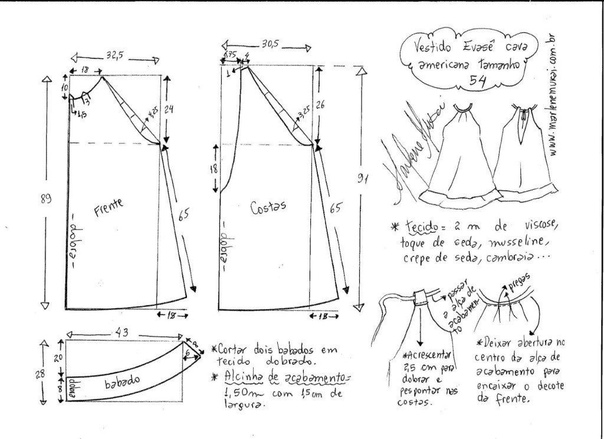 Vestido Evasê cava
americana tamanho
54
www.marlenemukai.com.br
Marlene Mukai
32,5
18
10
3
1,5
3,25
24
89
Frente
65
- dobra -
13
30,5
6,75
4
1
3,25
26
18
91
Costas
65
- dobra -
13
* tecido = 2 m de viscose,
toque de seda, musseline,
crepe de seda, cambraia...
43
28
20
8
8
6
dobra
babado
*Cortar dois babados em
tecido dobrado.
* Alcinha de acabamento=
1,50m com 15cm de
largura.
passar
a alça de
acabamen-
to
*Acrescentar
2,5 cm para
dobrar e
pespontar nas
costas.
pregas
*Deixar abertura no
centro da alça de
acabamento para
encaixar o decote
da frente.